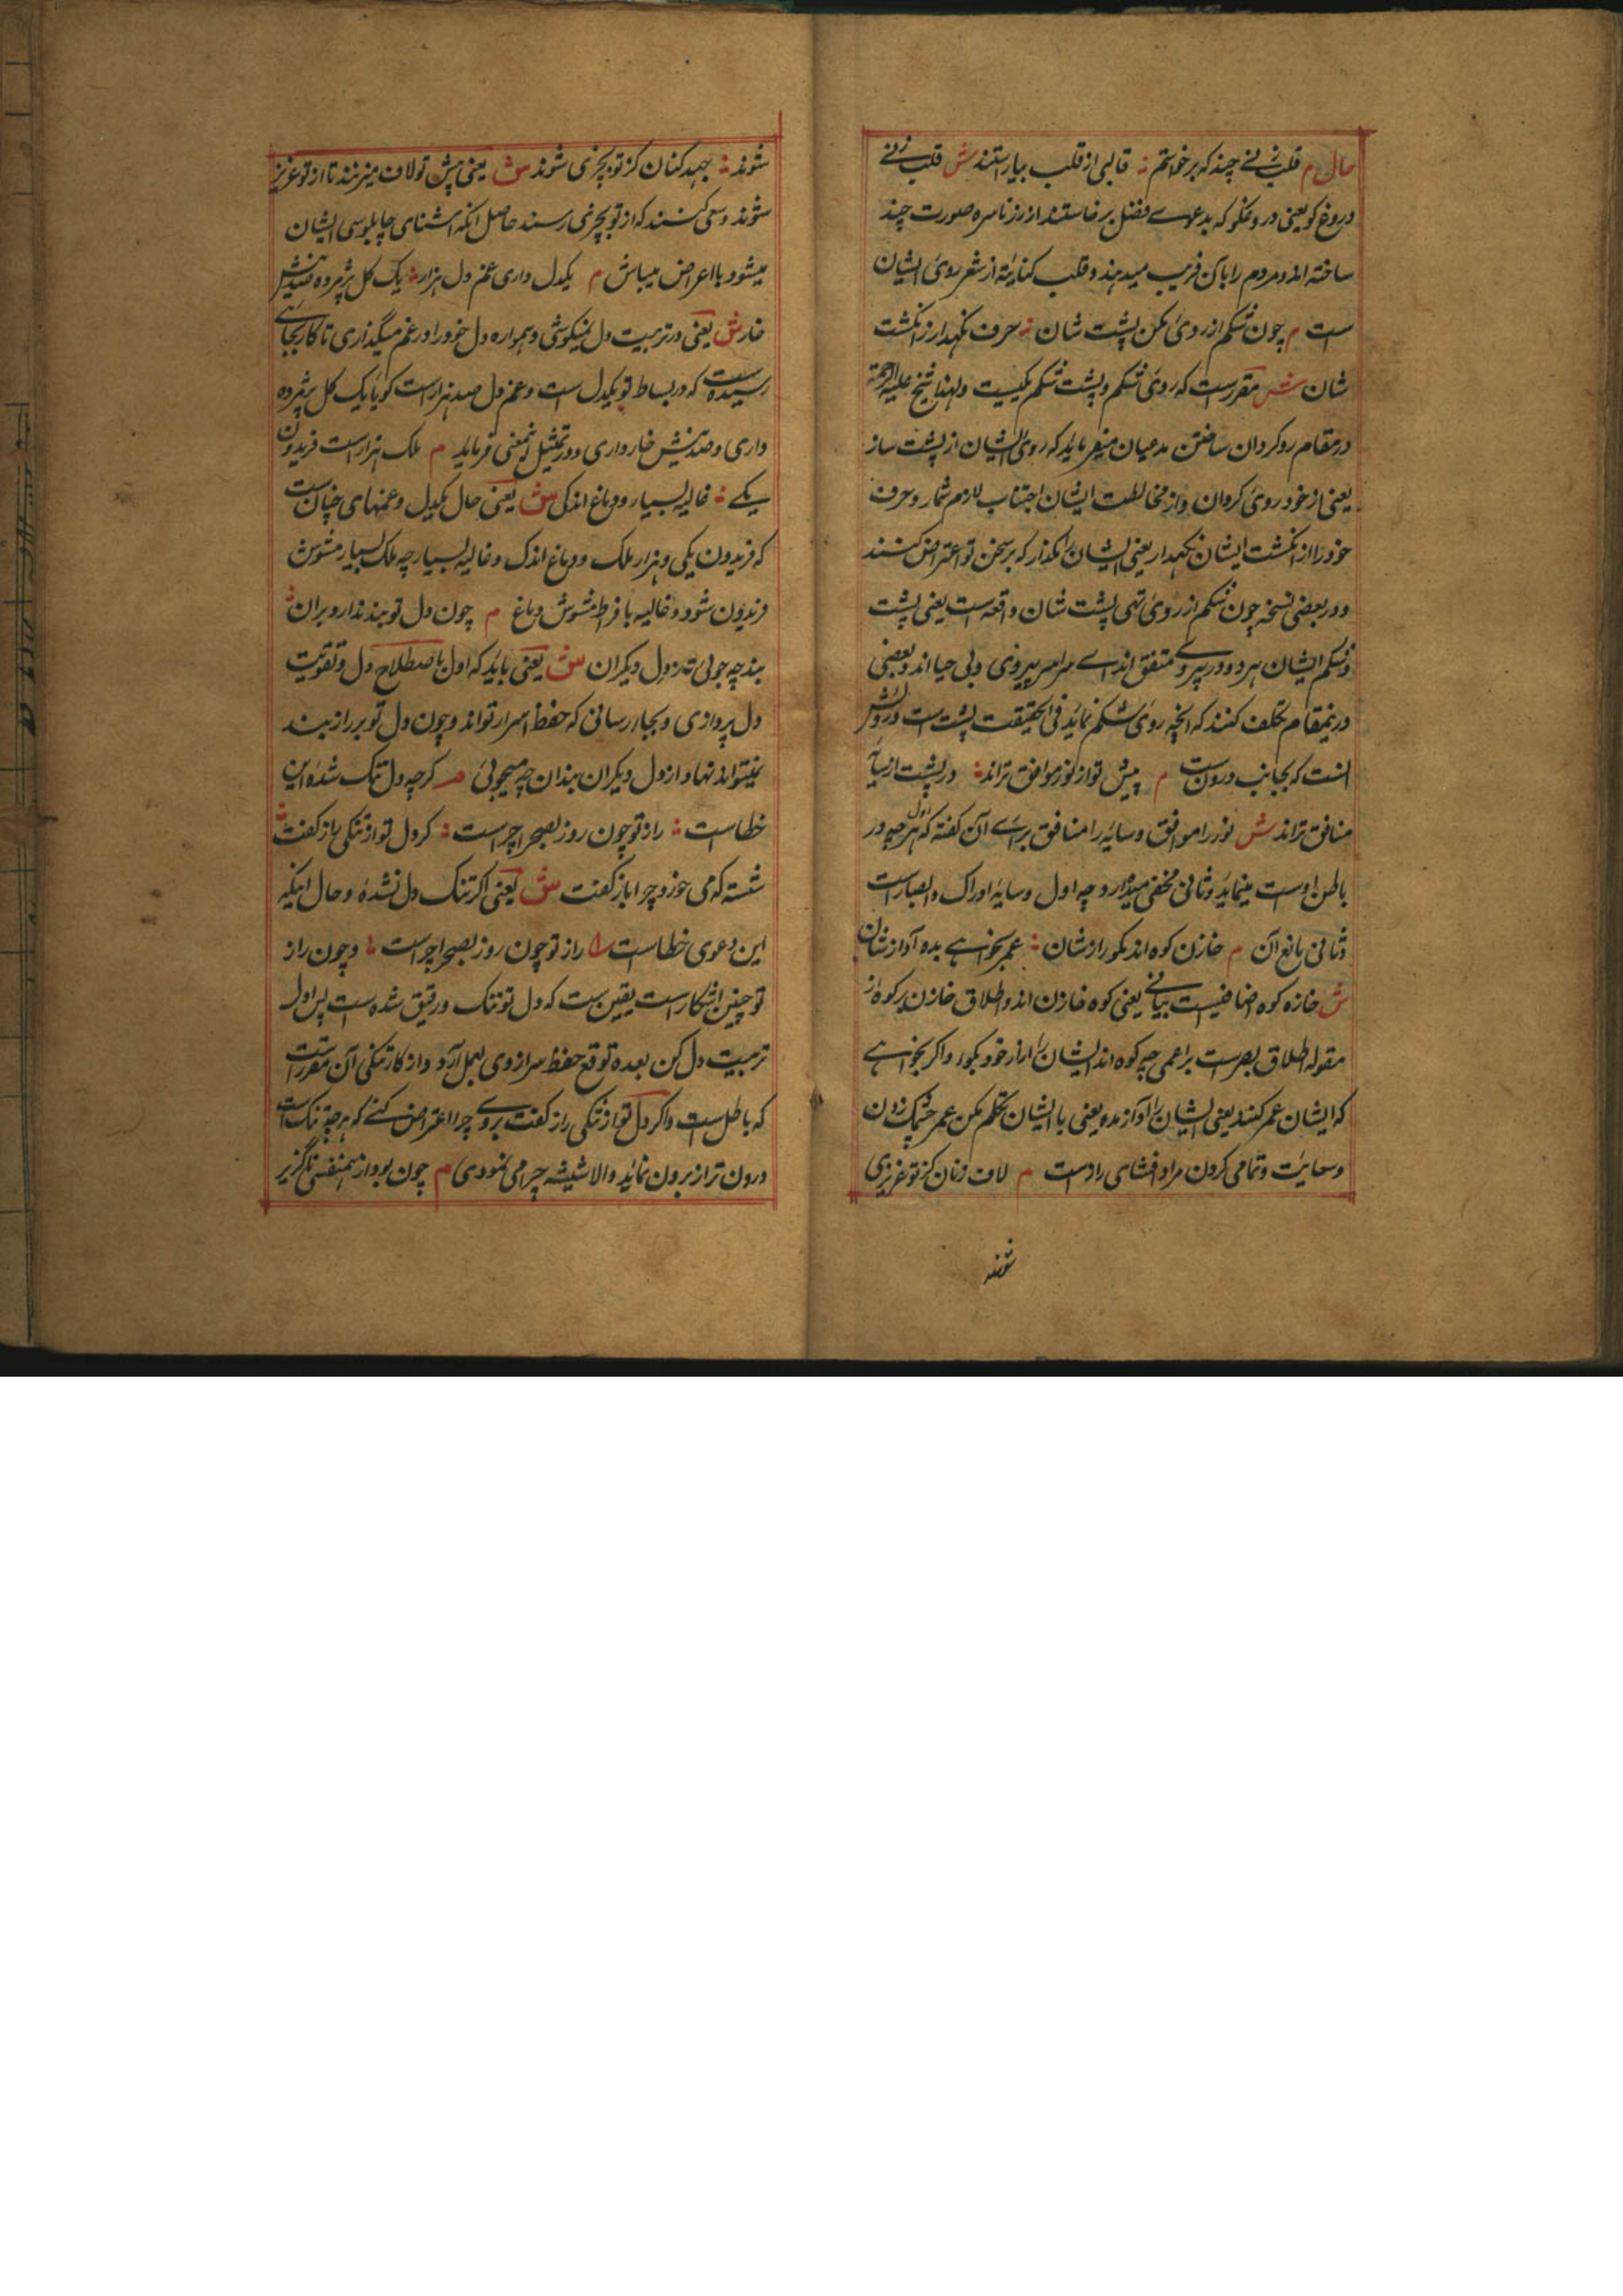 حال م قلب زنی چند که برخواستم ؞ قالبی از قلب بیاراستند ش قلب زنی
دروغ گو یعنی دروغگو که بدعوے فضل برخاستند از زر ناسره صورت چند
ساخته اند و مردم را بآن فریب میدهند و قلب کنایة از شعر روی ایشان
ست م چون شکم از روی مکن پشت شان ؞ حرف نگهدار ز انکشت
شان ش مقررست که روی شکم و پشت شکم یکیست ولهذا شیخ علیه الرحمة
در مقام رو کردان ساختن مدعیان میفرماید که روی ایشان از پشت ساز
یعنی از خود روی کردان و از مخالطت ایشان اجتناب لازم شمار و حرف
خود را از انکشت ایشان نکهدار یعنی ایشان را مکذار که بر سخن تو اعتراض کنند
و در بعضی نسخه چون شکم از روی تهی پشت شان واقعه است یعنی پشت
و شکم ایشان هر دو در بیروے متفق اندے سراسر بیروی و بی حیا اند و بعضی
درینمقام تکلف کنند که انچه روی شکم نماید فی الحقیقت پشت ست و رویش
انست که بجانب درونست م پیش تو از نور موافق تراند ؞ در پشت از سایه
منافق تراند ش نور را موافق و سایه را منافق براے آن کفته که اول هر چه در
باطن اوست مینماید و ثانی مخفی میدارد چه اول وسایه ادراک و ابصارست
و ثانی مانع آن م خازن کوه اند مکو راز شان ؞ غمز نخواهے مده آواز شان
ش خازه کوه اضافیست بیانے یعنی کوه خازن اند و اطلاق خازن بر کوه از
مقوله اطلاق بصرست بر اعمی چه کوه اند ایشان را راز خود مکو و اکر نخواهے
که ایشان غمز کنند یعنی ایشان را آواز مده یعنی با ایشان تکلم مکن غمز چشمک زدن
و سعایت و نمامی کردن مراد افشای رازست م لاف زنان کز تو عزیزی
شوند
شوند ؞ جهد کنان کز تو بچیزی شوند ش یعنی پیش تو لاف میزنند تا از تو عزیز
شوند و سعی کنند که از تو بچیزی رسند حاصل آنکه اشنای چاپلوسی ایشان
میشود با اعراض میباش م یکدل داری غم دل هزار ؞ یک کل پژمرده صد نیش
خار ش یعنی در تربیت دل نمیکوشی و همواره دل خود را در غم میگذاری تا کار بجایے
رسیده ست که در بساط تو یکدل ست و غم دل صد هزار است کویا یک کل پژمرده
داری و صد نیش خار داری و در تمثیل اینمعنی فرماید م ملک هزار است فریدون
یکے ؞ غالیه بسیار و دماغ اندکی ش یعنی حال یکدل و غمهای چنان ست
که فریدون یکی و هزار ملک و دماغ اندک و غالیه بسیار چه ملک بسیار مشوش
فریدون شود و غالیه با فراط مشوش دماغ م چون دل تو بند ندارد بران ؞
بند چه جوئی ز دل دیکران ش یعنی باید که اول باصطلاح دل و تقویت
دل پردازی و بجا رسانی که حفظ اسرار تواند و چون دل تو بر راز بند
نمیتواند نهاد از دل دیکران بندان چه میجوئی م کر چه دل تنک شده این
خطاست ؞ راز تو چون روز بصحرا چراست ؞ کر دل تو از تنکی راز کفت ؞
شیشه که می خورد چرا باز کفت ش یعنی اکر تنک دل نشده و حال اینکه
این دعوی خطاست ؞ راز تو چون روز بصحرا چراست ؞ و چون راز
تو چنین اشکار است یقین ست که دل تو تنک و رقیق شده ست پس اول
تربیت دل کن بعده توقع حفظ سر از وی بعمل آرد و از کار تنکی آن مقررست
که باطل ست و اکر دل تو از تنکی راز کفت بروے چرا اعتراض کنے که هر چه تنک است
درون تر از برون نماید والا شیشه چرا می نمودی م چون بود از همنفسی ناکزیر